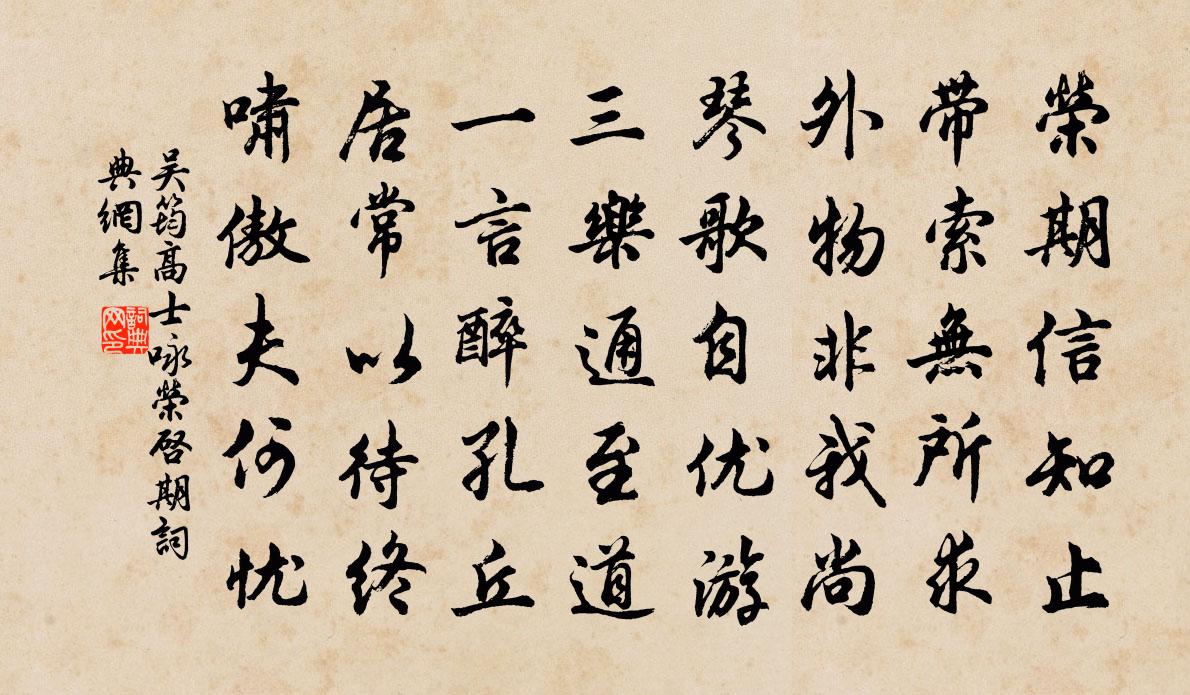 榮期信知止
帶索無所求
外物非我尚
琴歌自优游
三樂通至道
一言醉孔丘
居常以待终
嘯傲夫何忧
吴筠高士咏榮啓期詞
典網集
詞典网印